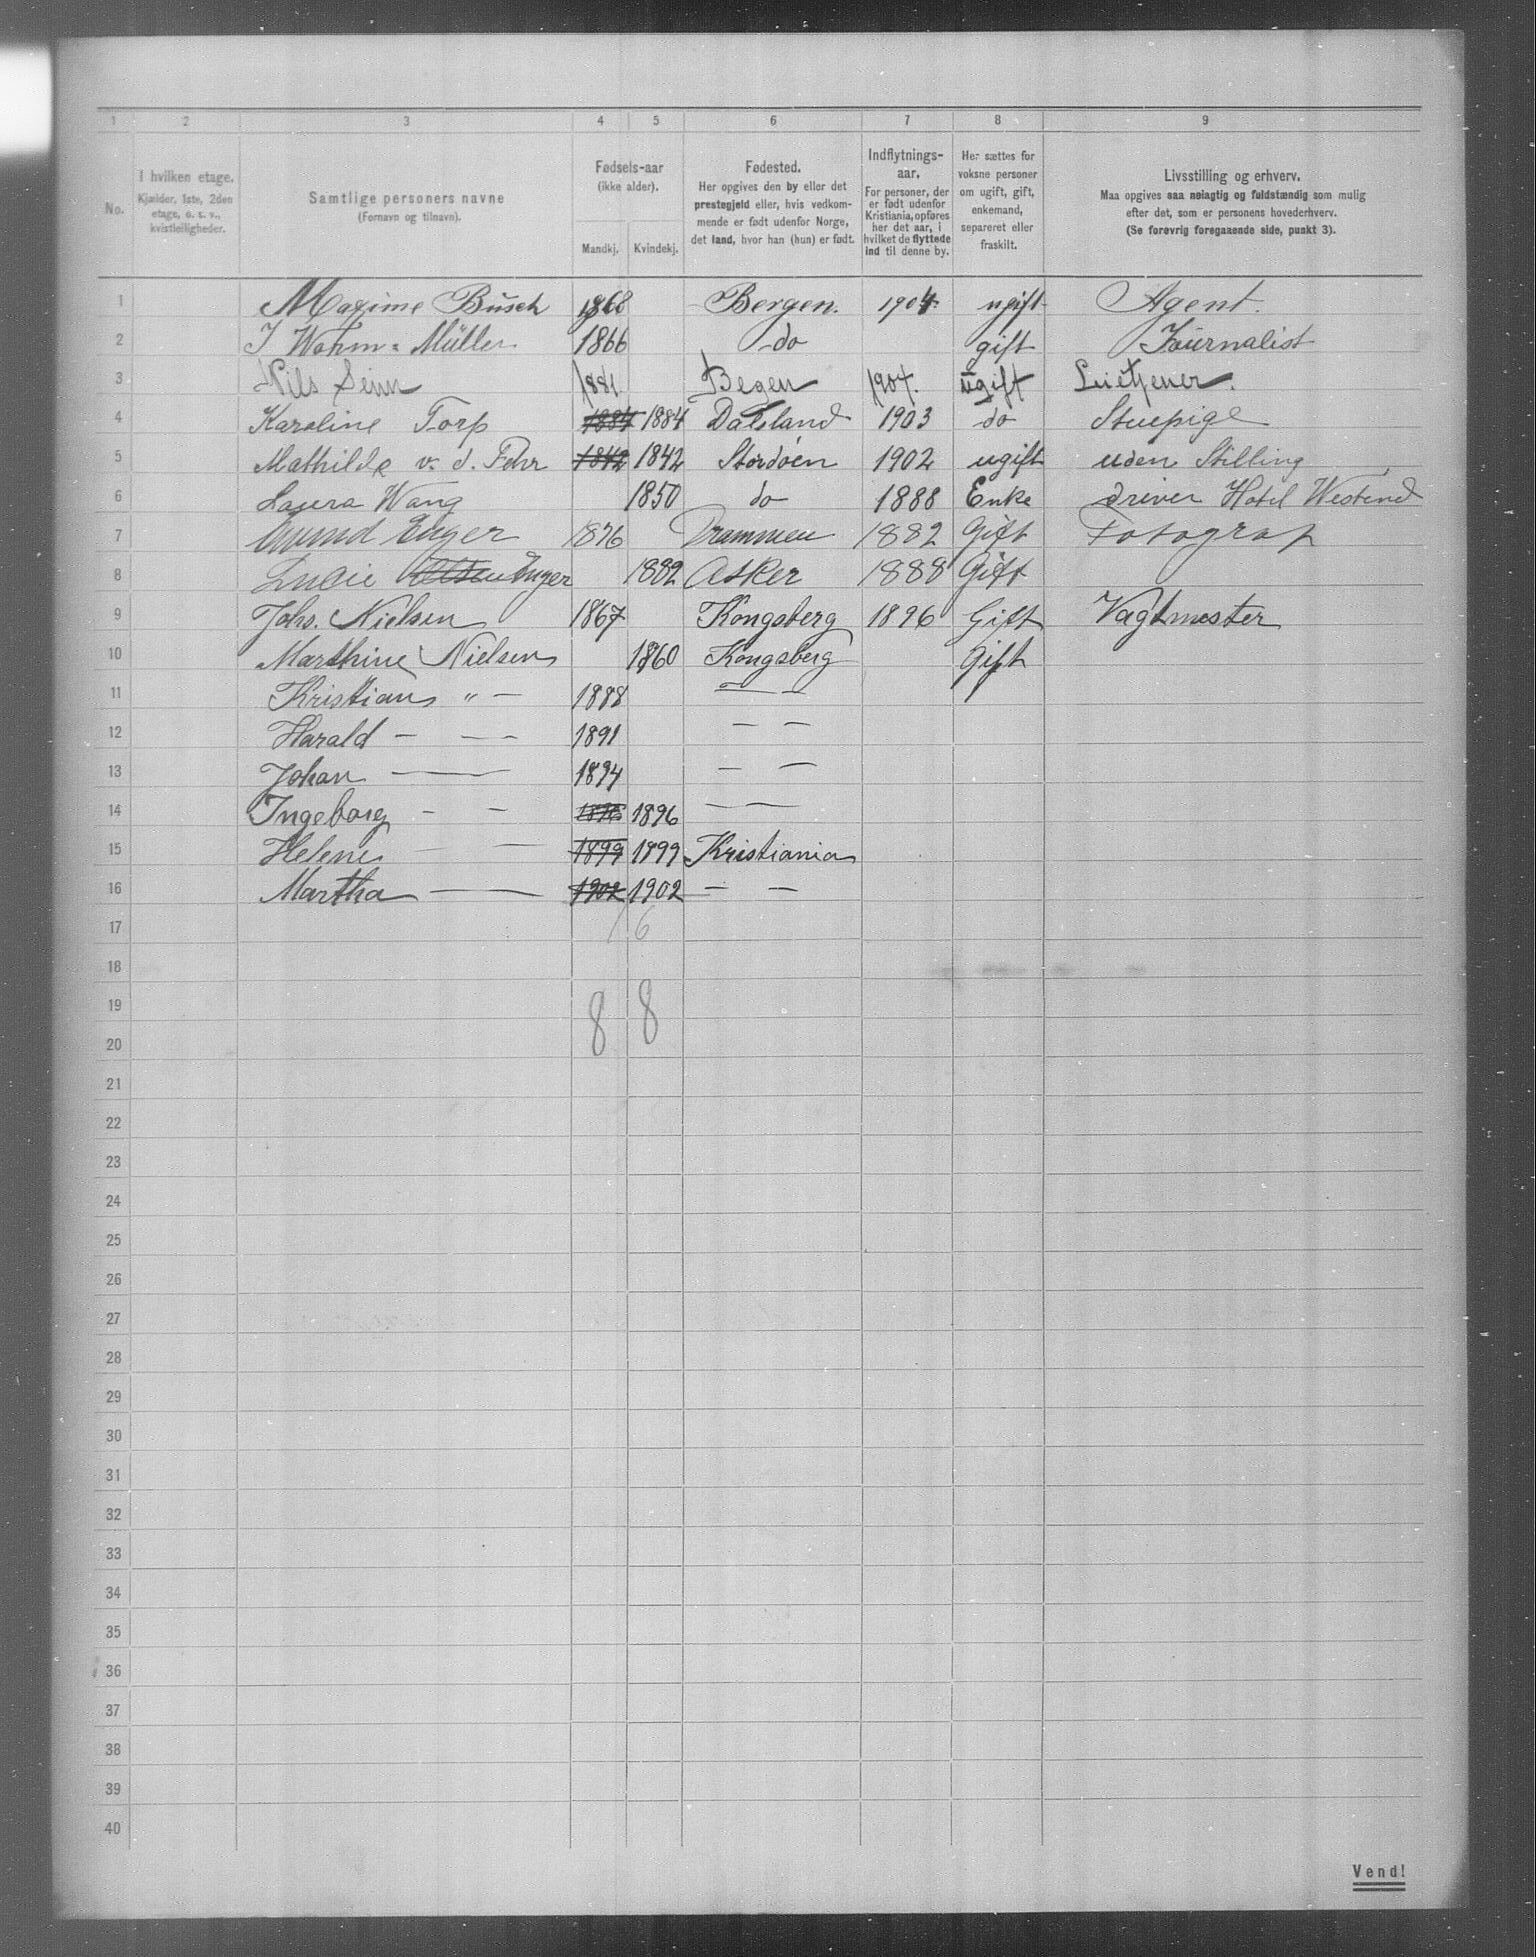 1 2 3 4 5 6 7 8 9
No.
I hvilken etage.
Kjælder, 1ste, 2den
etage, o. s. v.,
kvistleiligheder.
Samtlige personers navne
(Fornavn og tilnavn).
Fødsels-aar
(ikke alder).
Mandkj. Kvindekj.
Fødested.
Her opgives den by eller det
prestegjeld eller, hvis vedkom-
mende er født udenfor Norge,
det land, hvor han (hun) er født.
Indflytnings-
aar.
For personer, der
er født udenfor
Kristiania, opføres
her det aar, i
hvilket de flyttede
ind til denne by.
Her sættes for
voksne personer
om ugift, gift,
enkemand,
separeret eller
fraskilt.
Livsstilling og erhverv.
Maa opgives saa nøiagtig og fuldstændig som mulig
efter det, som er personens hovederhverv.
(Se forøvrig foregaaende side, punkt 3).
1 Maxime Büsch 1868 Bergen. 1904 ugift Agent.
2 J Wohm = Müller 1866 do gift Journalist
3 Nils 1881 Bergen 1904. ugift
4 Karoline Torp 1884 1884 Dalsland 1903 do Stuepige
5 Mathilde v. d. Fehr 1842 1842 Stordøen 1902 ugift uden Stilling
6 Laura Wang 1850 do 1888 Enke driver Hotel Westend
7 Amund Enger 1876 Drammen 1882 Gift Fotograf
8 Lucie Olsen Enger 1882 Asker 1888 Gift
9 Johs. Nielsen 1867 Kongsberg 1896 Gift Vagtmester
10 Marthine Nielsen 1860 Kongsberg Gift
11 Kristian " — 1888 — —
12 Harald — — — 1891 — —
13 Johan — — 1894 — —
14 Ingeborg — — 1896 1896 — —
15 Helene — — 1899 1899 Kristiania
16 Martha — — 1902 1902 — —
17 16
18
19 8 8
20
21
22
23
24
25
26
27
28
29
30
31
32
33
34
35
36
37
38
39
40
Vend!